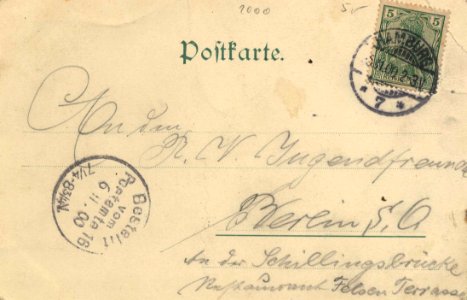 1000
5
5
Postkarte.
HAMBURG
* 7 *
An den
R. V. Jugendfreunde
Berlin S. O
An der Schillingsbrücke
Restaurant Felsen Terrasse
Bestellt
vom
Postamte 16
6 11 00
7¼-8½N